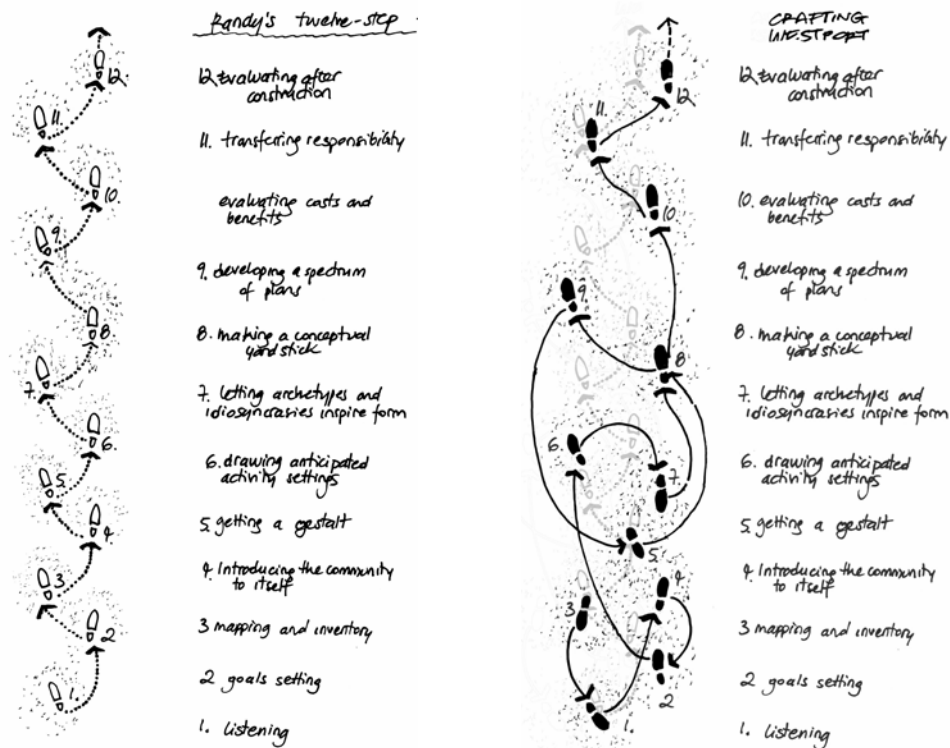 Randy's twelve-step
12 Evaluating after
construction
11. transferring responsibility
evaluating costs and
benefits
9. developing a spectrum
of plans
8. making a conceptual
yardstick
7. letting archetypes and
idiosyncrasies inspire form
6. drawing anticipated
activity settings
5. getting a gestalt
4. Introducing the community
to itself
3 mapping and inventory
2 goals setting
1. Listening
12.
11.
10.
9.
8
7.
6.
5.
4
3
2
1.
CRAFTING
WESTPORT
12 Evaluating after
construction
11. transferring responsibility
10. evaluating costs and
benefits
9. developing a spectrum
of plans
8. making a conceptual
yardstick
7. letting archetypes and
idiosyncrasies inspire form
6. drawing anticipated
activity settings
5. getting a gestalt
4. Introducing the community
to itself
3 mapping and inventory
2 goals setting
1. Listening
11.
12.
10
9.
8
6.
7.
5.
4
3
2
1.